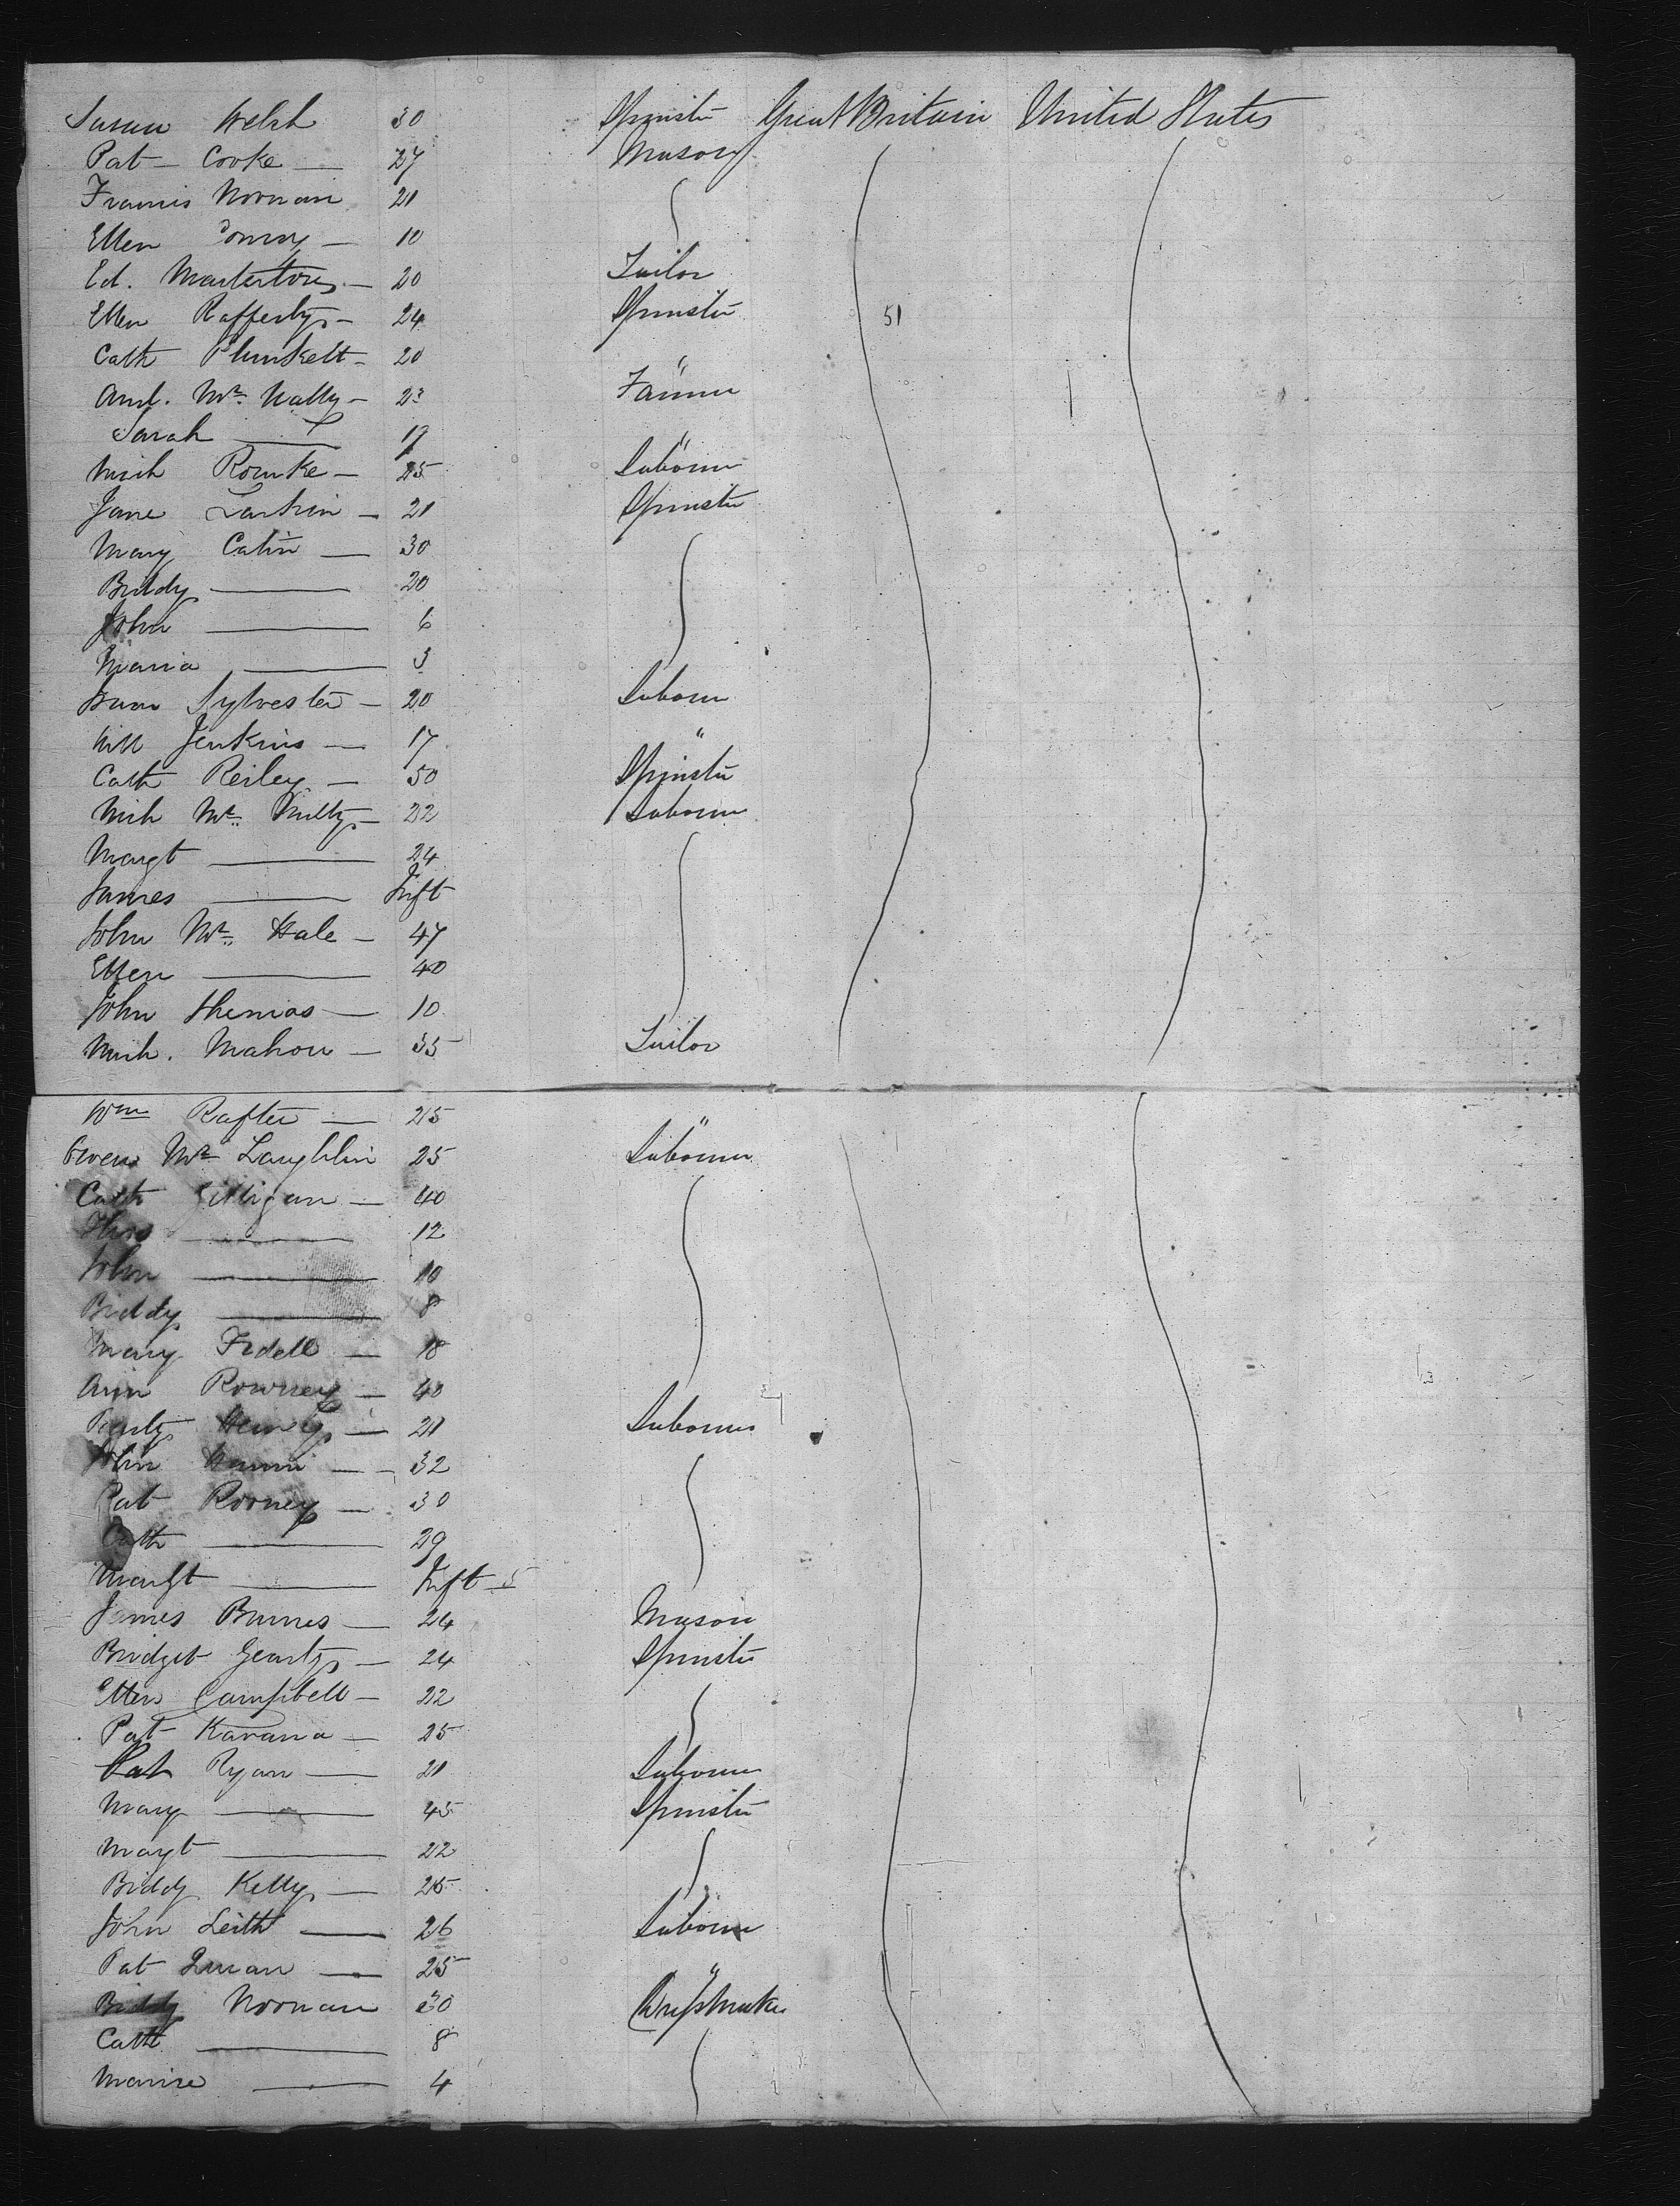 Susan Welsh 30 Spinster Great Britain United States
Pat Cooke — 27 Mason
Francis Noonan 21
Ellen Conroy — 10
Ed. Masterton — 20 Tailor
Ellen Rafferty — 24 Spinster 51
Cath Plunkett — 20 "
And. Mc Nally — 23 Farmer
Sarah — 17 "
Mich Rourke — 25 Laborer
Jane Larkin — 21 Spinster
Mary Catin — 30
Biddy — 20
John — 6
Maria — 3
Sylvester — 20 Laborer
Will Jenkins — 17 "
Cath Reiley — 50 Spinster
Mich Mc Nulty — 22 Laborer
Margt — 24
James — Inft
John Mc Hale — 47
Ellen — 40
John Thomas — 10
Mich. Mahon — 35 Tailor
Wm Rafter — 25 "
Owen Mc Laughlin 25 Laborer
Cath Gilligan — 40
Thos — 12
John — 10
Biddy — 8
Mary Fidell — 18
Ann Rowney — 40
Henry — 21 Laborer
John — 32
Pat Rooney — 30
Cath — 29
Margt — Inft 5
James Burnes — 24 Mason
Bridget Gearty — 24 Spinster
Ellen Campbell — 22
Pat Kavana — 25
Pat Ryan — 21 Laborer
Mary — 45 Spinster
Margt — 22
Biddy Kelly — 25
John Leith — 26 Laborer
Pat Quinan — 25 "
Biddy Noonan 30 Dressmaker
Cath — 8
— 4